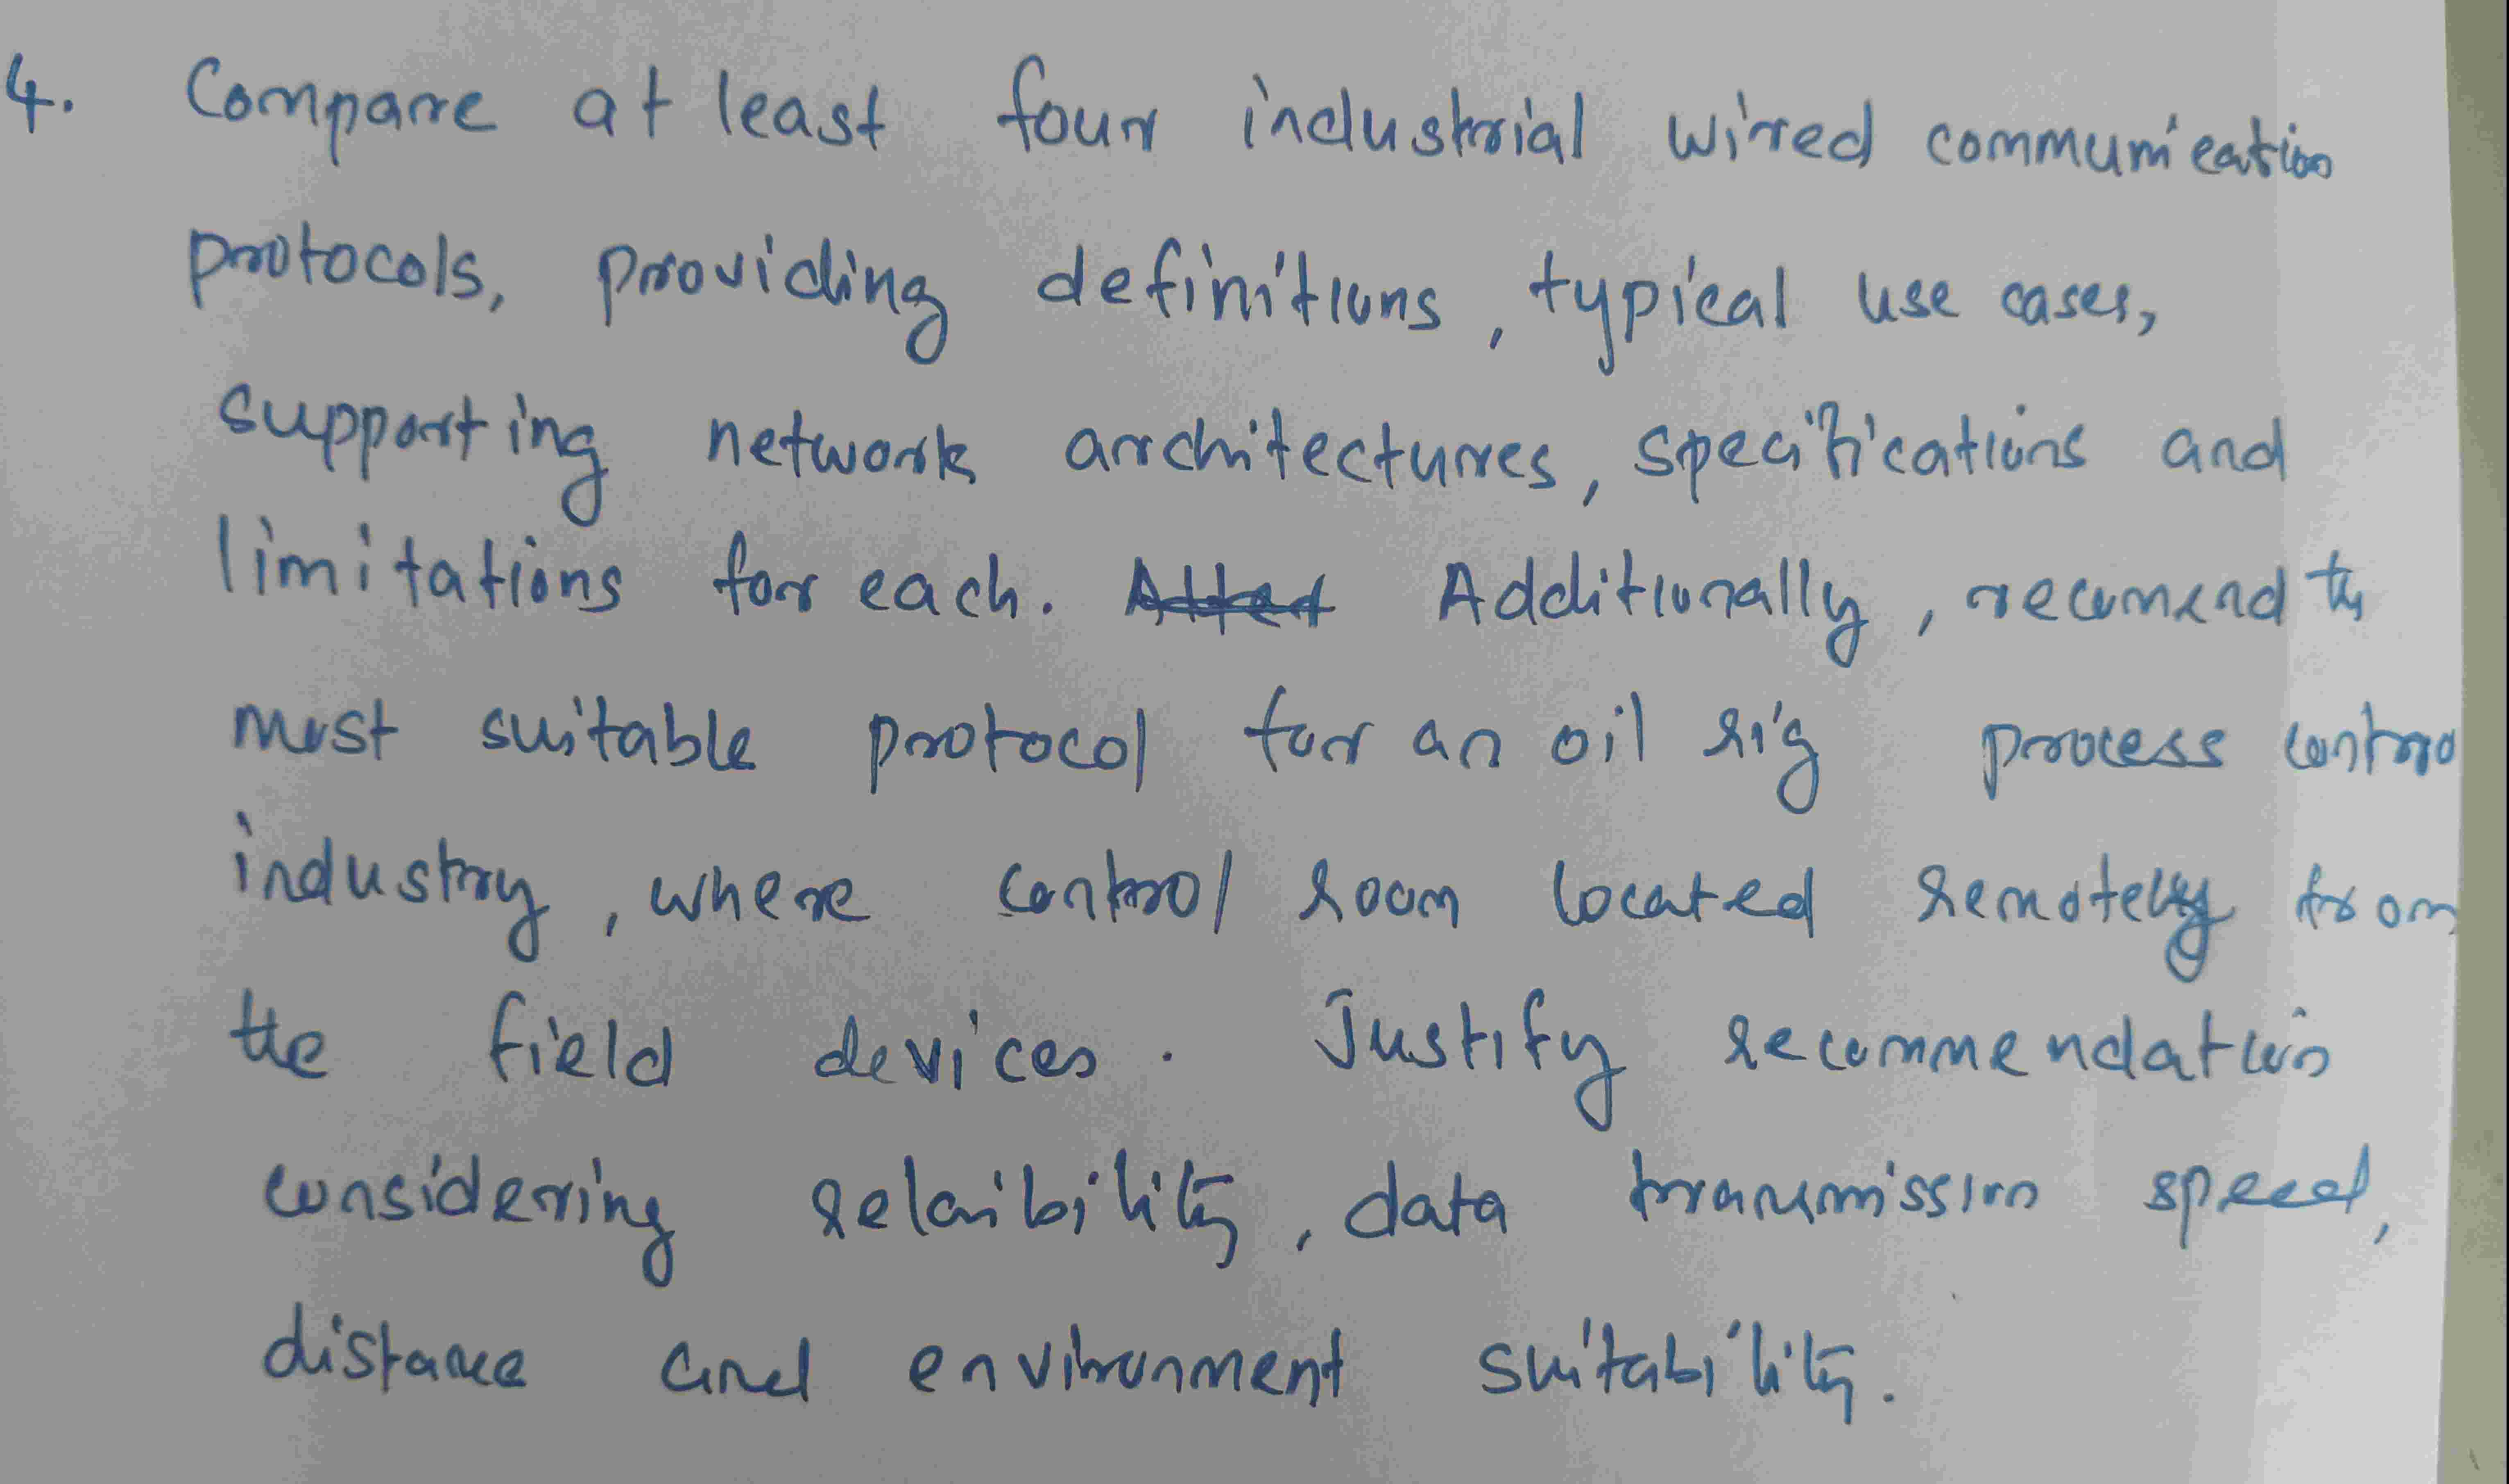 4. Compare at least four industrial wired communication
protocols, providing definitions, typical use cases,
supporting network architectures, specifications and
limitations for each. Additionally, recomend the
most suitable protocol for an oil rig process contro
industry, where control room located remotely from
the field devices. Justify recommendation
considering relaibility, data transmission speed,
distance and environment suitability.